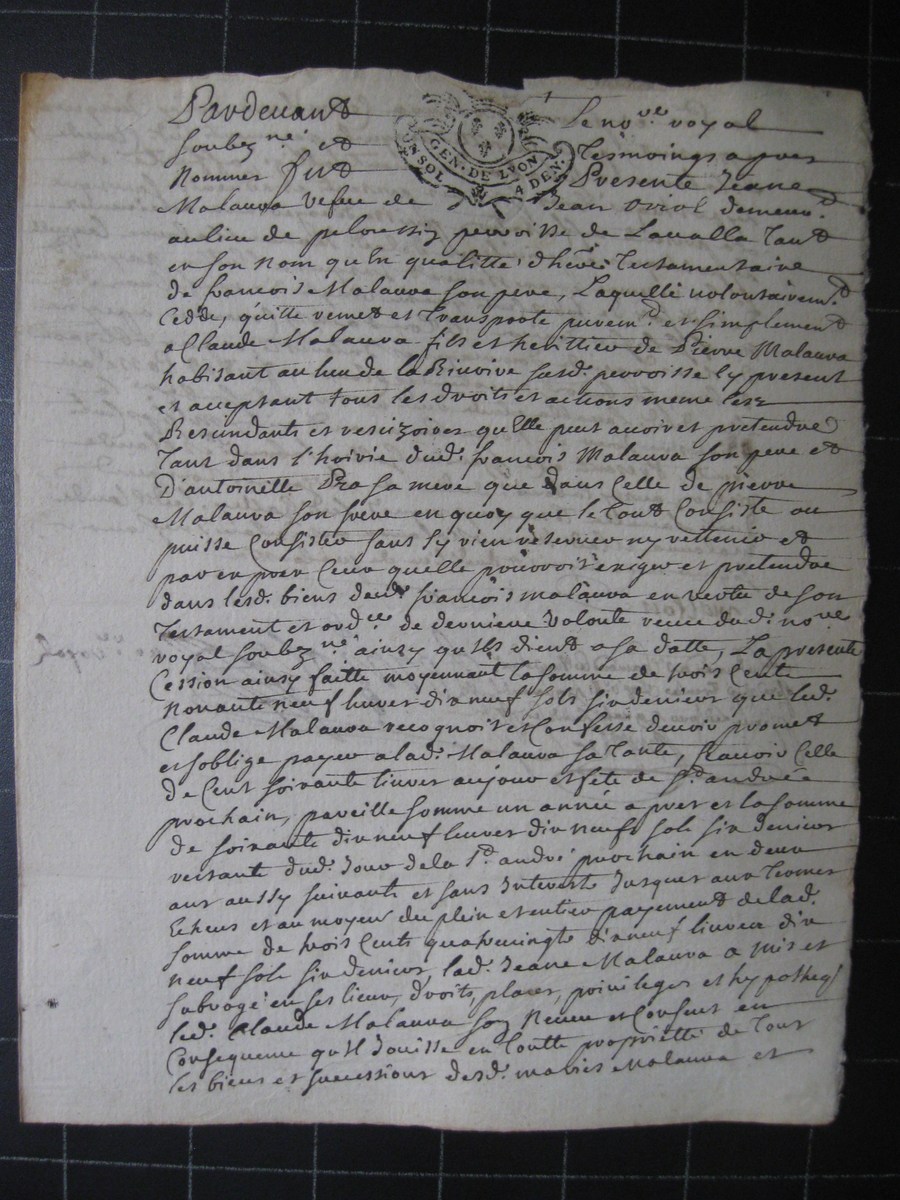 Pardevant Le no.re royal
soubz.né et tesmoings apres
nommes fut Presente Jeane
GEN. DE LYON
UN SOL 4 DEN.
Malauva vefue de Jean oriol demeur.t
au lieu de pelousin perroisse de Lavalla Tant
en son nom qu'En qualitté d'hére Testamentaire
de françois Malauva son pere, Laquelle volontairem.t
Cedde, quitte remet et Transporte purem.t et simplement
a Claude Malauva fils et herittier de Pierre Malauva
habitant au lieu de la Rivoire susd. perroisse Cy present
et acceptant tous les droits et actions meme les
Rescindants et rescizoires qu'elle peut avoir et pretendre
Tant dans l'hoirie dud. françois Malauva son pere et
D'antoinette Pra sa mere que dans Celle de pierre
Malauva son frere en quoy que le tout Consiste ou
puisse Consister sans s'y rien reserver ny rettenir et
par expres Ceux quelle pourroit exiger et pretendre
dans lesd. biens dud. françois malauva en vertu de son
Testament et ord.ce de derniere volonte receu dud. no.re
royal soubz.né ainsy qu'Ils dient a sa datte, La presente
Cession ainsy faitte moyennant la somme de trois Cents
Nonante neuf livres dix neuf sols six deniers que led.
Claude Malauva recognoit et Confesse devoir promet
et s'oblige payer a lad. Malauva sa Tante, Scavoir Celle
de Cent soixante livres au jour et féte de S.t andrée
prochain, pareille somme un année apres et la somme
de soixante dix neuf livres dix neuf sols six deniers
restante dud. Jour de la S.t andré prochain en deux
ans aussy suivants et sans Interests Jusques aux Termes
Echeus et au moyen du plein et entier payement de lad.
somme de trois Cents quatrevingts dixneuf livres dix
neuf sols six deniers, lad. Jeane Malauva a mis et
subrogé en ses lieux, droits, places, privileges et hypotheq.s
led. Claude Malauva son Neveu et Consent en
Consequence qu'Il Jouisse en toutte proprietté de tous
les biens et successions desd. maries Malauva et